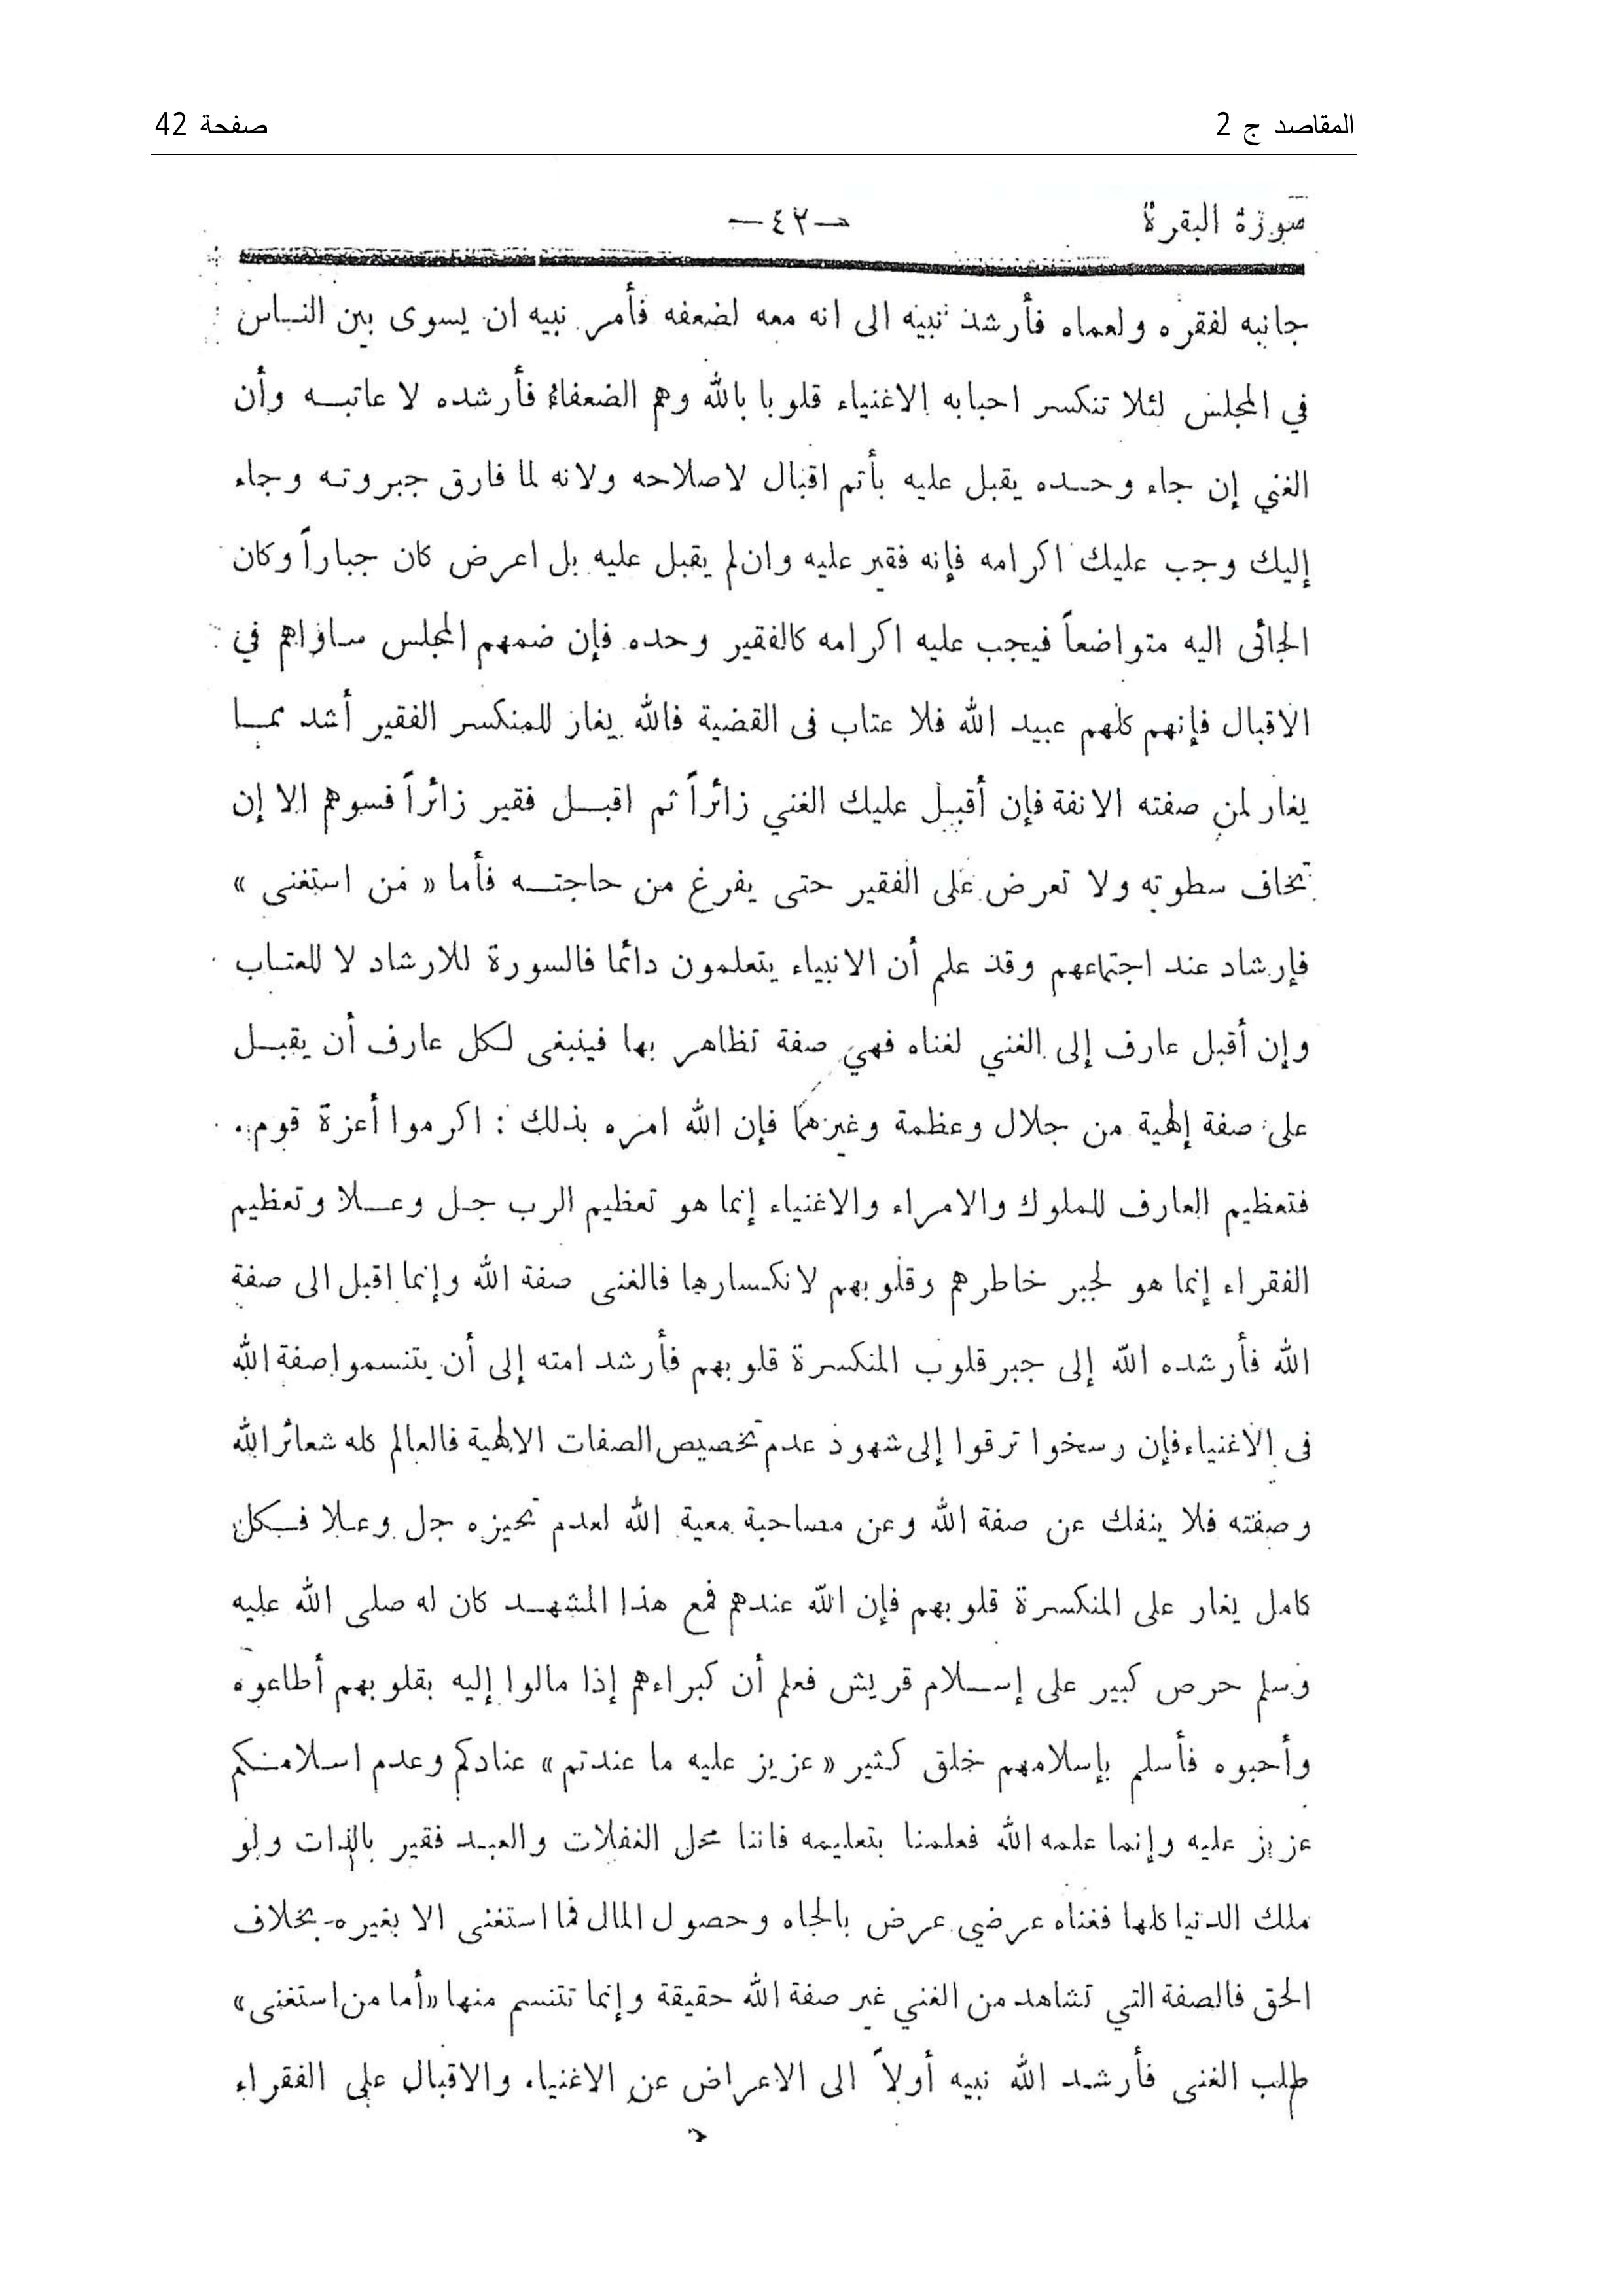 المقاصد ج 2
صفحة 42
سورة البقرة
—٤٢—
جانبه لفقره ولعماه فأرشد نبيه الى انه معه لضعفه فأمر نبيه ان يسوى بين النـاس
في المجلس لئلا تنكسر احبابه الاغنياء قلوبا بالله وهم الضعفاء فأرشده لا عاتبـه وأن
الغني إن جاء وحـده يقبل عليه بأتم اقبال لاصلاحه ولانه لما فارق جبروتـه وجاء
إليك وجب عليك اكرامه فإنه فقير عليه وان لم يقبل عليه بل اعرض كان جباراً وكان
الجائى اليه متواضعاً فيجب عليه اكرامه كالفقير وحده فإن ضمهم المجلس ساواهم في
الاقبال فإنهم كلهم عبيد الله فلا عتاب فى القضية فالله يغار للمنكسر الفقير أشد ممـا
يغار لمن صفته الانفة فإن أقبـل عليك الغني زائراً ثم اقبـل فقير زائراً فسوهم الا إن
تخاف سطوته ولا تعرض على الفقير حتى يفرغ من حاجتـه فأما « من استغنى »
فإرشاد عند اجتماعهم وقد علم أن الانبياء يتعلمون دائما فالسورة للارشاد لا للعتـاب
وإن أقبل عارف إلى الغني لغناه فهي صفة تظاهر بها فينبغى لـكل عارف أن يقبـل
على صفة إلهية من جلال وعظمة وغيرهما فإن الله امره بذلك : اكرموا أعزة قوم .
فتعظيم العارف للملوك والامراء والاغنياء إنما هو تعظيم الرب جـل وعـلا وتعظيم
الفقراء إنما هو لجبر خاطرهم وقلوبهم لانكـسارها فالغنى صفة الله وإنما اقبل الى صفة
الله فأرشده الله إلى جبر قلوب المنكسرة قلوبهم فأرشد امته إلى أن يتنسموا صفة الله
فى الاغنياء فإن رسخوا ترقوا إلى شهود عدم تخصيص الصفات الالهية فالعالم كله شعائر الله
وصفته فلا ينفك عن صفة الله وعن مصاحبة معية الله لعدم تحيزه جل وعـلا فـكل
كامل يغار على المنكسرة قلوبهم فإن الله عندهم فمع هذا المشهـد كان له صلى الله عليه
وسلم حرص كبير على إسـلام قريش فعلم أن كبراءهم إذا مالوا إليه بقلوبهم أطاعوه
وأحبوه فأسلم بإسلامهم خلق كـثير « عزيز عليه ما عندتم » عنادكم وعدم اسـلامـكم
عزيز عليه وإنما علمه الله فعلمنا بتعليمه فاننا محل الغفلات والعبـد فقير بالذات ولو
ملك الدنيا كلها فغناه عرضي عرض بالجاه وحصول المال فما استغنى الا بغيره بخلاف
الحق فالصفة التي تشاهد من الغني غير صفة الله حقيقة وإنما تتنسم منها « أما من استغنى »
طلب الغنى فأرشـد الله نبيه أولاً الى الاعراض عن الاغنياء والاقبال على الفقراء